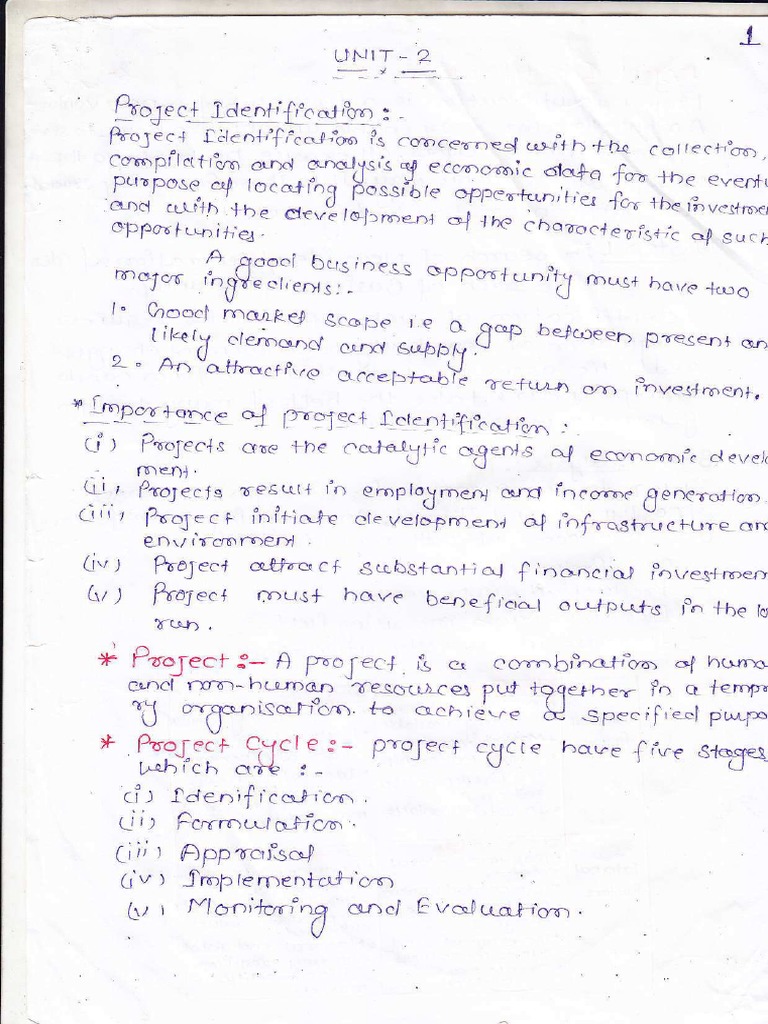 1
UNIT - 2
Project Identification :-
Project Identification is concerned with the collection,
compilation and analysis of economic data for the eventu
purpose of locating possible oppertunities for the investme
and with the development of the characteristic of such
opportunities.
A good business opportunity must have two
major ingredients:-
1. Good market scope i.e a gap between present an
likely demand and supply.
2. An attractive acceptable return on investment.
* Importance of project Identification :
(i) Projects are the catalytic agents of economic devel
ment.
(ii) Projects result in employment and income generation.
(iii) Project initiate development of infrastructure an
environment.
(iv) Project attract substantial financial investmen
(v) Project must have beneficial outputs in the lo
run.
* Project :- A project is a combination of huma
and non-human resources put together in a tempr
ry organisation to achieve a specified purpo
* Project Cycle :- project cycle have five stages
which are :-
(i) Idenification.
(ii) Formulation.
(iii) Appraisal
(iv) Implementation
(v) Monitoring and Evaluation.